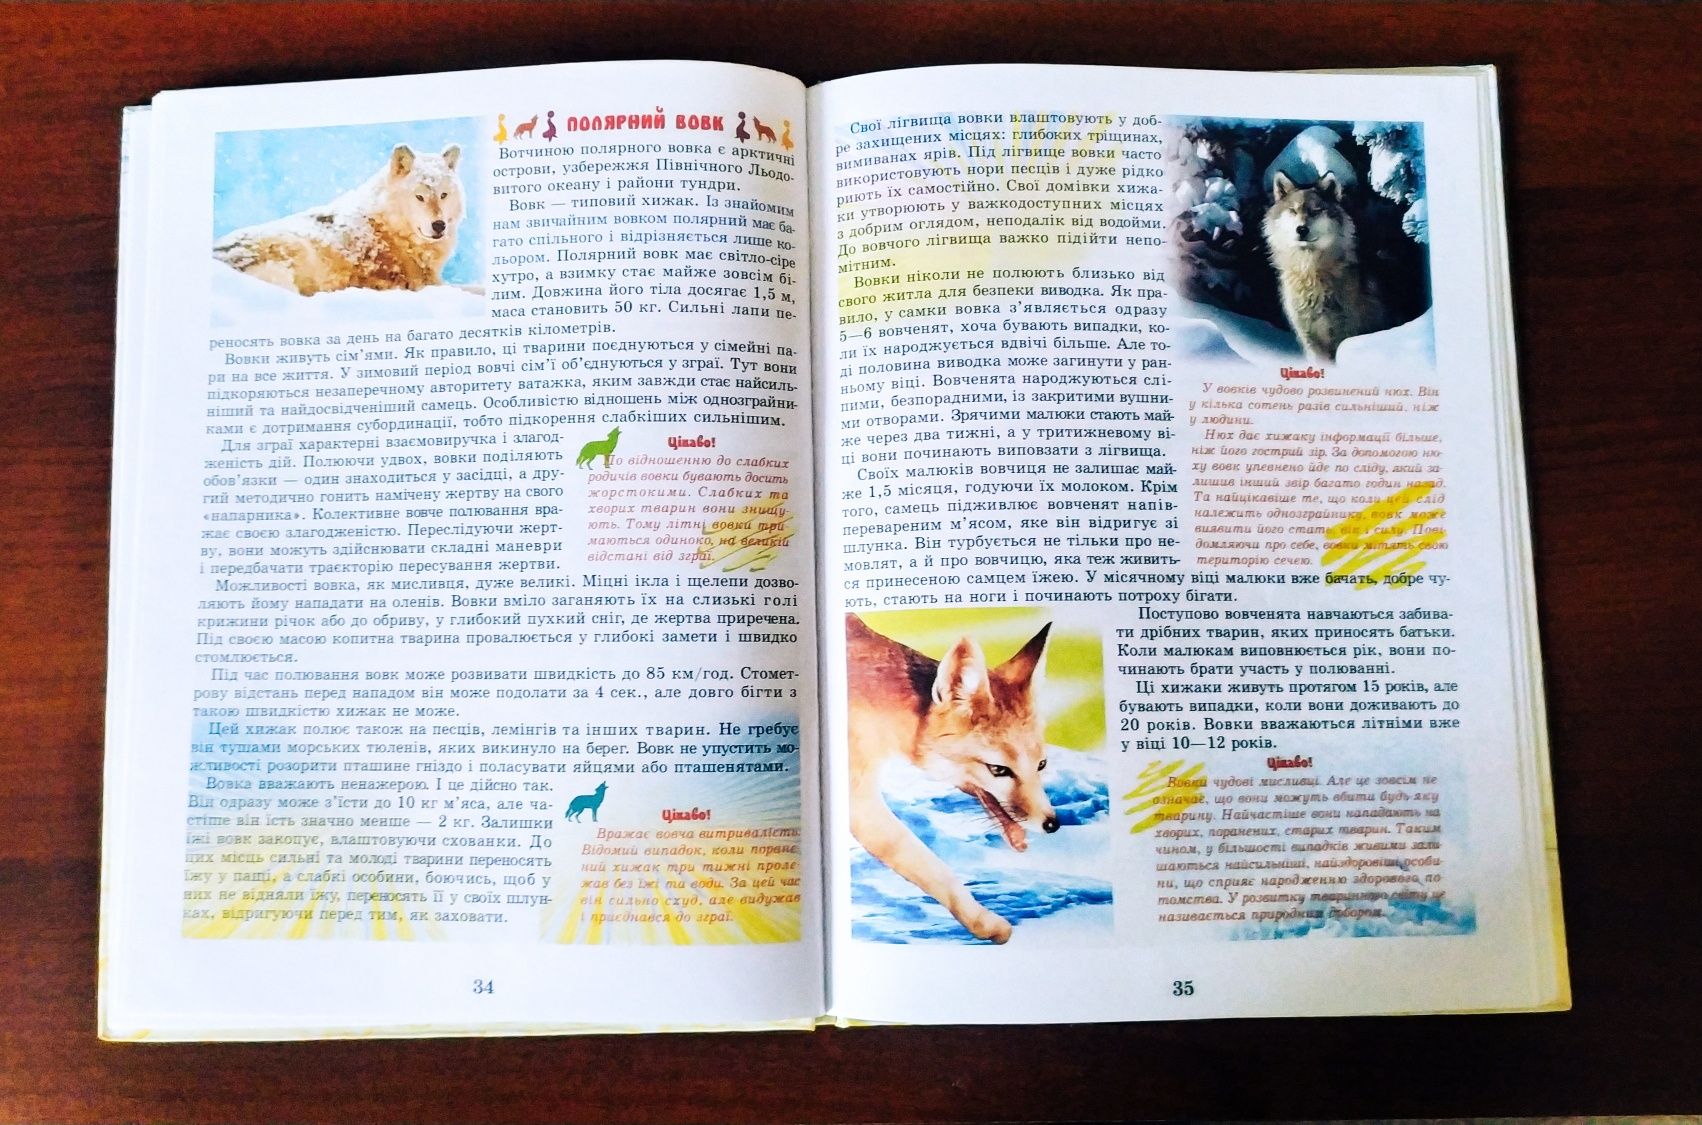 ПОЛЯРНИЙ ВОВК
Вотчиною полярного вовка є арктичні
острови, узбережжя Північного Льодо-
витого океану і райони тундри.
Вовк — типовий хижак. Із знайомим
нам звичайним вовком полярний має ба-
гато спільного і відрізняється лише ко-
льором. Полярний вовк має світло-сіре
хутро, а взимку стає майже зовсім бі-
лим. Довжина його тіла досягає 1,5 м,
маса становить 50 кг. Сильні лапи пе-
реносять вовка за день на багато десятків кілометрів.
Вовки живуть сім’ями. Як правило, ці тварини поєднуються у сімейні па-
ри на все життя. У зимовий період вовчі сім’ї об’єднуються у зграї. Тут вони
підкоряються незаперечному авторитету ватажка, яким завжди стає найсиль-
ніший та найдосвідченіший самець. Особливістю відношень між однозграйни-
ками є дотримання субординації, тобто підкорення слабкіших сильнішим.
Для зграї характерні взаємовиручка і злагод-
женість дій. Полюючи удвох, вовки поділяють
обов’язки — один знаходиться у засідці, а дру-
гий методично гонить намічену жертву на свого
«напарника». Колективне вовче полювання вра-
жає своєю злагодженістю. Переслідуючи жерт-
ву, вони можуть здійснювати складні маневри
і передбачати траєкторію пересування жертви.
Цікаво!
По відношенню до слабких
родичів вовки бувають досить
жорстокими. Слабких та
хворих тварин вони знищу-
ють. Тому літні вовки три-
маються одиноко, на великій
відстані від зграї.
Можливості вовка, як мисливця, дуже великі. Міцні ікла і щелепи дозво-
ляють йому нападати на оленів. Вовки вміло заганяють їх на слизькі голі
крижини річок або до обриву, у глибокий пухкий сніг, де жертва приречена.
Під своєю масою копитна тварина провалюється у глибокі замети і швидко
стомлюється.
Під час полювання вовк може розвивати швидкість до 85 км/год. Стомет-
рову відстань перед нападом він може подолати за 4 сек., але довго бігти з
такою швидкістю хижак не може.
Цей хижак полює також на песців, лемінгів та інших тварин. Не гребує
він тушами морських тюленів, яких викинуло на берег. Вовк не упустить мо-
жливості розорити пташине гніздо і поласувати яйцями або пташенятами.
Вовка вважають ненажерою. І це дійсно так.
Він одразу може з’їсти до 10 кг м’яса, але ча-
стіше він їсть значно менше — 2 кг. Залишки
їжі вовк закопує, влаштовуючи схованки. До
цих місць сильні та молоді тварини переносять
їжу у пащі, а слабкі особини, боючись, щоб у
них не відняли їжу, переносять її у своїх шлун-
ках, відригуючи перед тим, як заховати.
Цікаво!
Вражає вовча витривалість.
Відомий випадок, коли поране-
ний хижак три тижні проле-
жав без їжі та води. За цей час
він сильно схуд, але видужав
і приєднався до зграї.
34
Свої лігвища вовки влаштовують у доб-
ре захищених місцях: глибоких тріщинах,
вимиванах ярів. Під лігвище вовки часто
використовують нори песців і дуже рідко
риють їх самостійно. Свої домівки хижа-
ки утворюють у важкодоступних місцях
з добрим оглядом, неподалік від водойми.
До вовчого лігвища важко підійти непо-
мітним.
Вовки ніколи не полюють близько від
свого житла для безпеки виводка. Як пра-
вило, у самки вовка з’являється одразу
5—6 вовченят, хоча бувають випадки, ко-
ли їх народжується вдвічі більше. Але то-
ді половина виводка може загинути у ран-
ньому віці. Вовченята народжуються слі-
пими, безпорадними, із закритими вушни-
ми отворами. Зрячими малюки стають май-
же через два тижні, а у тритижневому ві-
ці вони починають виповзати з лігвища.
Своїх малюків вовчиця не залишає май-
же 1,5 місяця, годуючи їх молоком. Крім
того, самець підживлює вовченят напів-
перевареним м’ясом, яке він відригує зі
шлунка. Він турбується не тільки про не-
мовлят, а й про вовчицю, яка теж живить-
ся принесеною самцем їжею. У місячному віці малюки вже бачать, добре чу-
ють, стають на ноги і починають потроху бігати.
Цікаво!
У вовків чудово розвинений нюх. Він
у кілька сотень разів сильніший, ніж
у людини.
Нюх дає хижаку інформації більше,
ніж його гострий зір. За допомогою ню-
ху вовк упевнено йде по сліду, який за-
лишив інший звір багато годин назад.
Та найцікавіше те, що коли цей слід
належить однозграйнику, вовк може
виявити його стать, вік і силу. Пові-
домляючи про себе, вовки мітять свою
територію сечею.
Поступово вовченята навчаються забива-
ти дрібних тварин, яких приносять батьки.
Коли малюкам виповнюється рік, вони по-
чинають брати участь у полюванні.
Ці хижаки живуть протягом 15 років, але
бувають випадки, коли вони доживають до
20 років. Вовки вважаються літніми вже
у віці 10—12 років.
Цікаво!
Вовки чудові мисливці. Але це зовсім не
означає, що вони можуть вбити будь-яку
тварину. Найчастіше вони нападають на
хворих, поранених, старих тварин. Таким
чином, у більшості випадків живими зали-
шаються найсильніші, найздоровіші особи-
ни, що сприяє народженню здорового по-
томства. У розвитку тваринного світу це
називається природним добором.
35